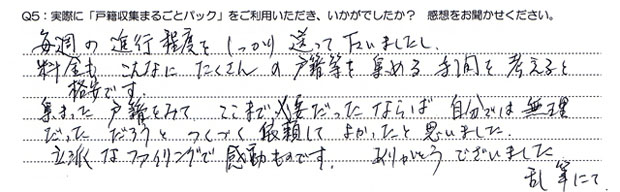 Q5：実際に「戸籍収集まるごとパック」をご利用いただき、いかがでしたか？ 感想をお聞かせください。
毎週の進行程度をしっかり送って下いましたし、
料金も こんなに たくさんの戸籍等を集める手間を考えると
格安です。
集まった戸籍をみて ここまで必要だったならば 自分では無理
だった だろうと つくづく依頼して よかったと思いました。
立派なファイリングで感動ものです。 ありがとう ございました
乱筆にて